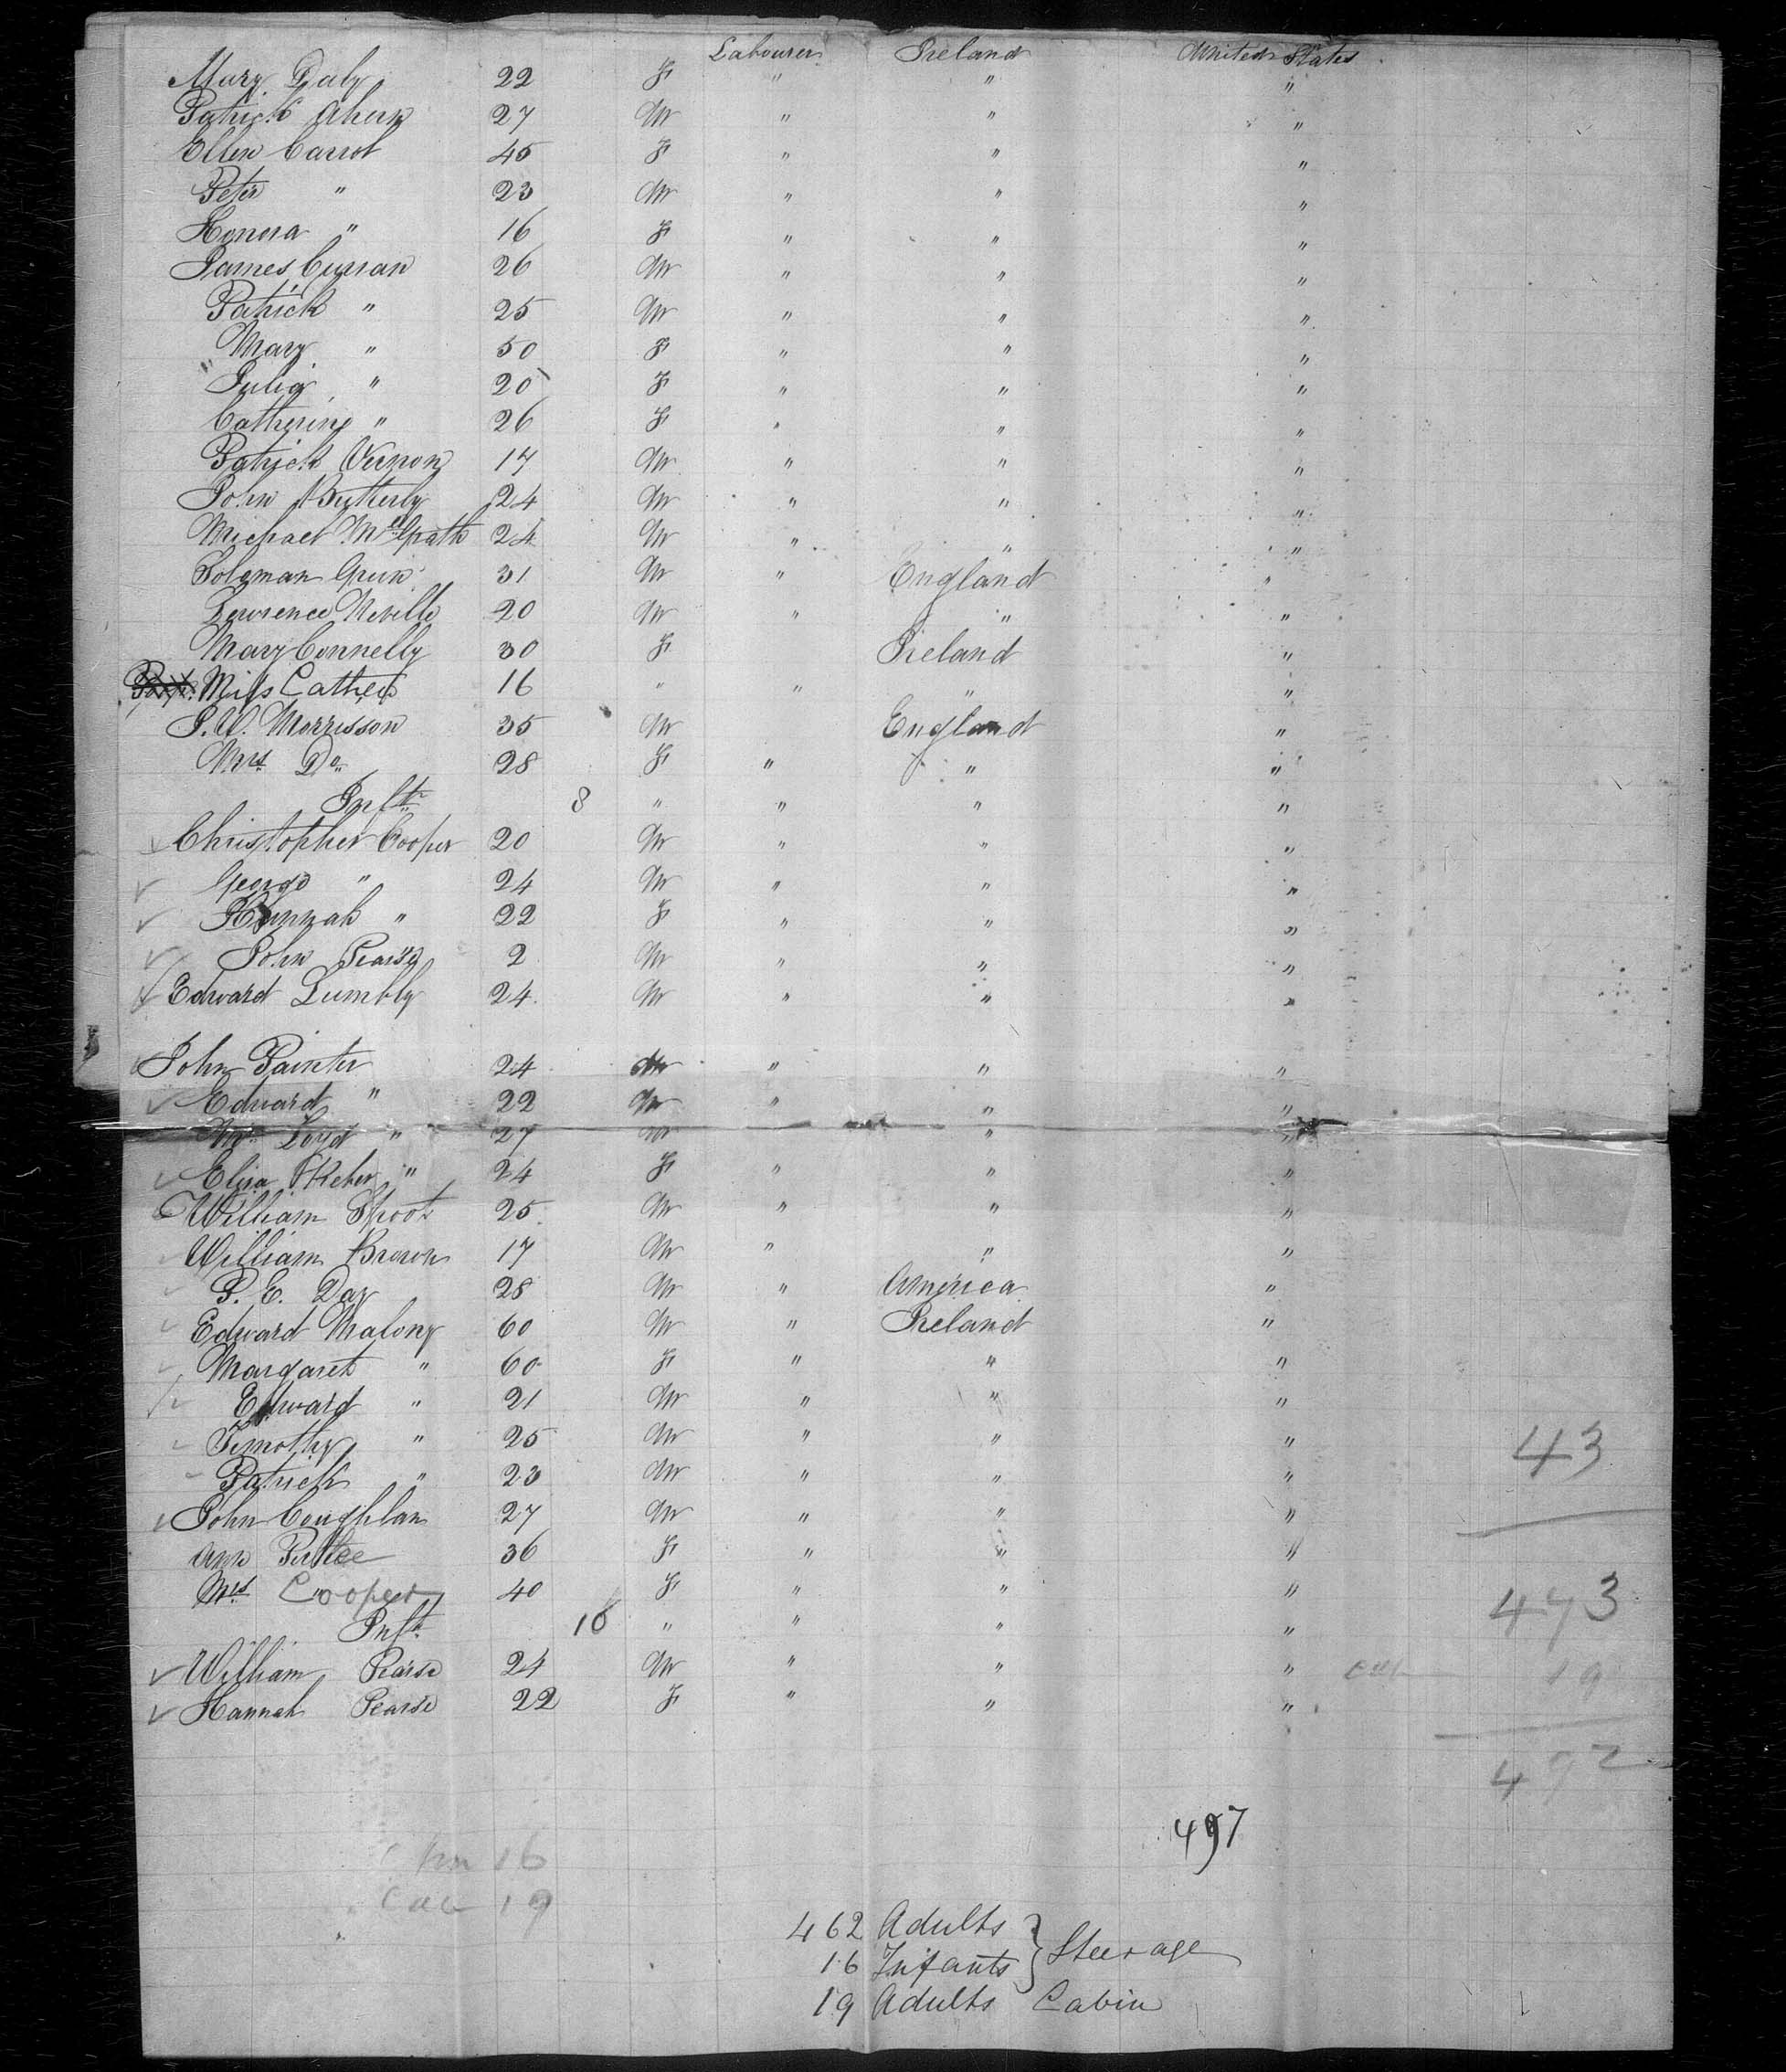 Labourer Ireland United States
Mary Daly 22 F " " "
Patrick Ahern 27 M " " "
Ellen Carrol 45 F " " "
Peter " 23 M " " "
Honora " 16 F " " "
James Curran 26 M " " "
Patrick " 25 M " " "
Mary " 50 F " " "
Julia " 20 F " " "
Catherine " 26 F " " "
Patrick Vernon 17 M " " "
John Butterly 24 M " " "
Michael McGrath 24 M " " "
Soloman Green 31 M " England "
Lawrence Neville 20 M " " "
Mary Connelly 30 F Ireland "
Miss Cather 16 " " " "
J. W. Morrisson 35 M England "
Mrs Do 28 F " " "
Inft 8 " " " "
Christopher Cooper 20 M " " "
George " 24 M " " "
Hannah " 22 F " " "
John Pearse 2 M " " "
Edward Lumbly 24 M " " "
John Painter 24 M " " "
Edward " 22 M " " "
" 27 M " "
Eliza " 24 F " " "
William 25 M " " "
William Brown 17 M " " "
P. E. Day 28 M " America "
Edward Malony 60 M " Ireland "
Margaret " 60 F " " "
Edward " 21 M " " "
Timothy " 25 M " " "
43
Patrick " 23 M " " "
John Coughlan 27 M " " "
Ann 36 F " " "
Mrs Cooper 40 F " " "
473
Inft 16 " " " "
William Pearse 24 M " " " 19
Hannah Pearse 22 F " " "
492
497
16
Cab 19
462 Adults
16 Infants } Steerage
19 Adults Cabin